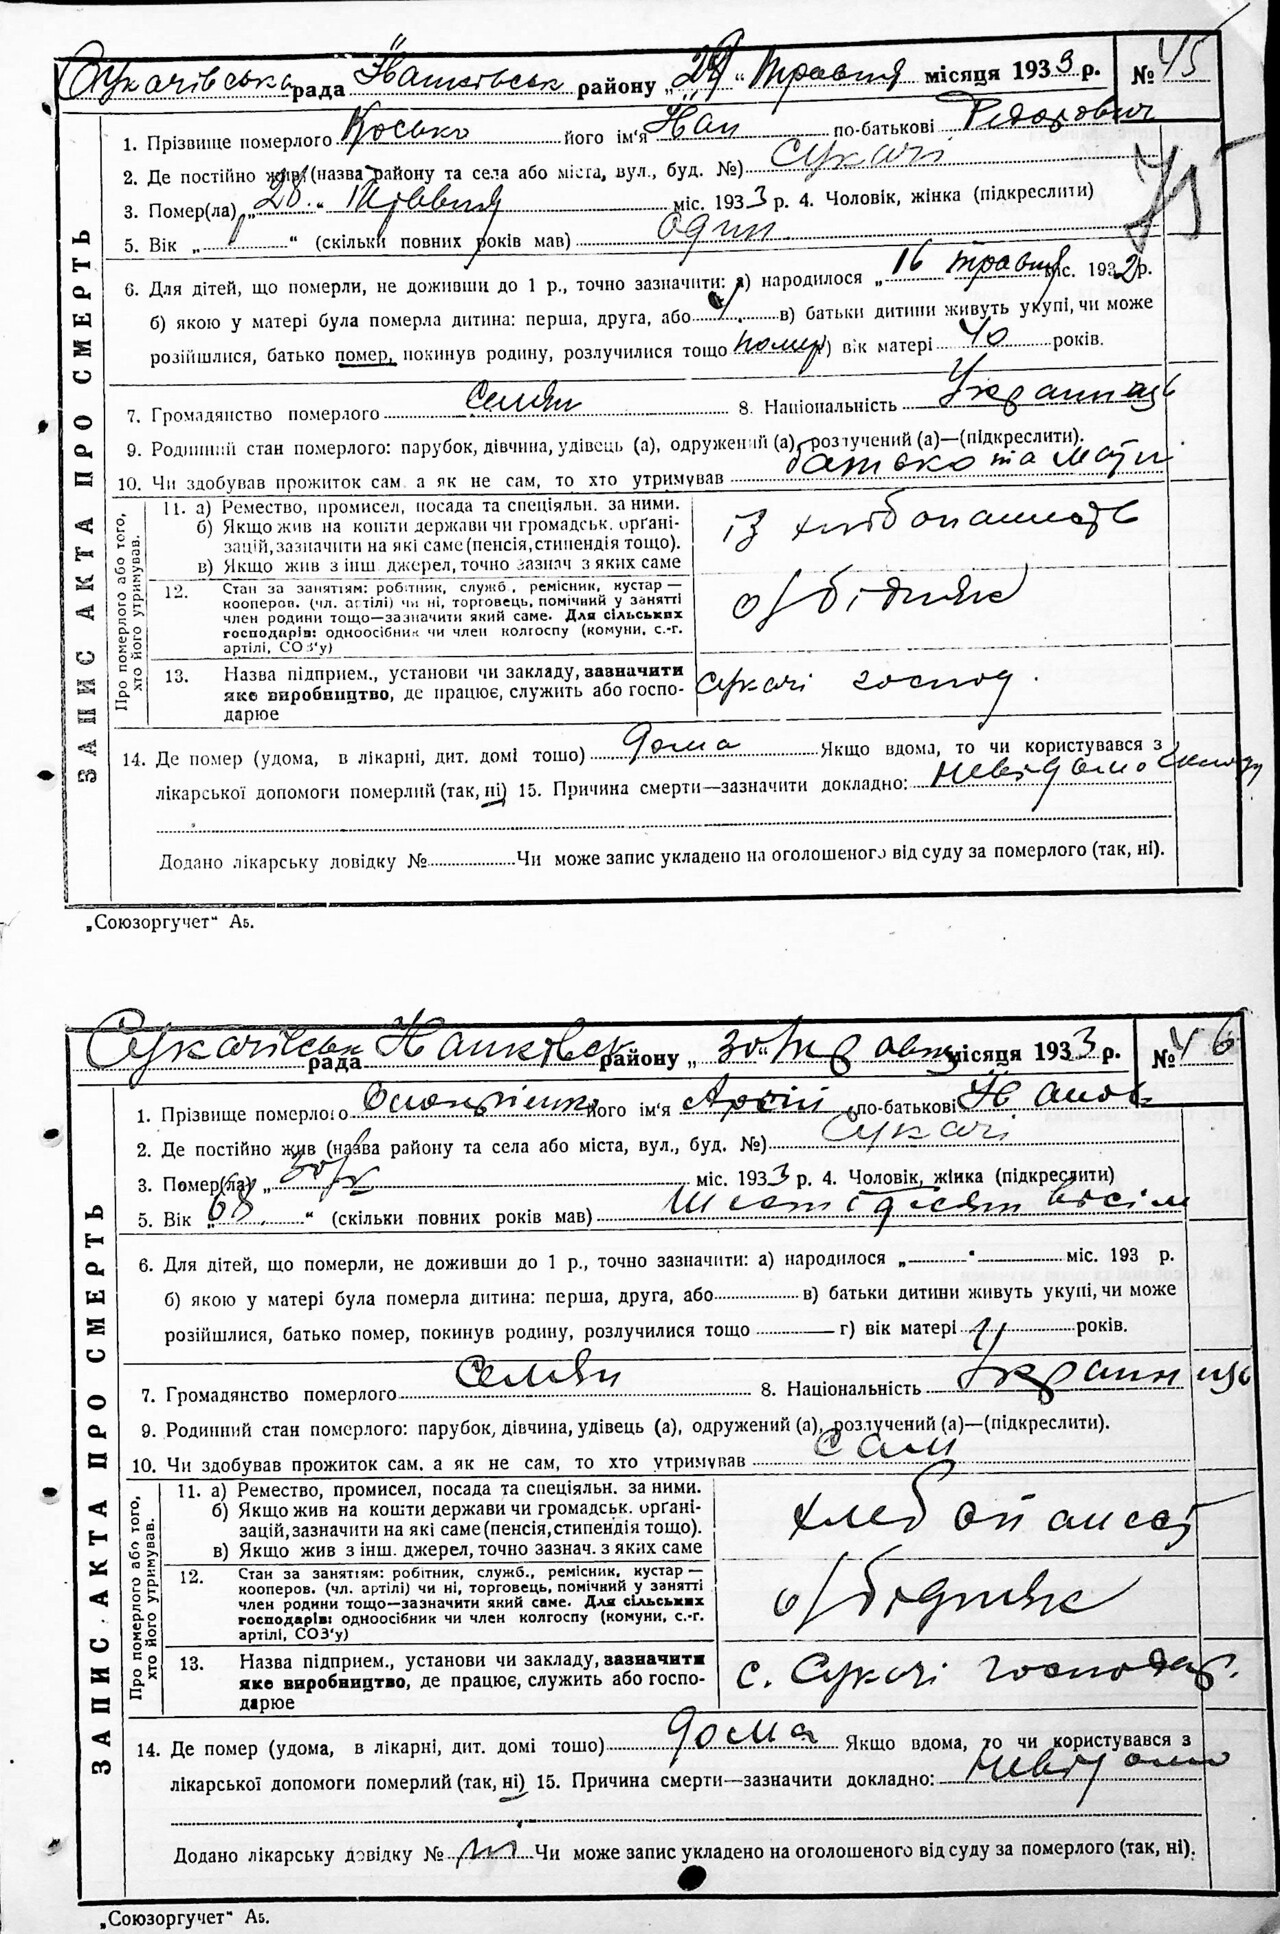 Сукачівська рада Іванківськ району „29“ травня місяця 1933 р. № 45
ЗАПИС АКТА ПРО СМЕРТЬ
1. Прізвище померлого Косько його ім'я Іван по-батькові Федорович
2. Де постійно жив (назва району та села або міста, вул., буд. №) Сукачі
75
3. Помер(ла) „28“ травня міс. 1933 р. 4. Чоловік, жінка (підкреслити)
5. Вік „1“ (скільки повних років мав) один
6. Для дітей, що померли, не доживши до 1 р., точно зазначити: а) народилося „16 травня міс. 1932 р.
б) якою у матері була померла дитина: перша, друга, або в) батьки дитини живуть укупі, чи може
розійшлися, батько помер, покинув родину, розлучилися тощо помер г) вік матері 40 років.
7. Громадянство померлого Селян 8. Національність Украинець
9. Родинний стан померлого: парубок, дівчина, удівець (а), одружений (а), розлучений (а)—(підкреслити).
10. Чи здобував прожиток сам а як не сам, то хто утримував батько та мати
Про померлого або того, хто його утримував.
11. а) Ремество, промисел, посада та спеціяльн. за ними.
б) Якщо жив на кошти держави чи громадськ. орґані-
зацій, зазначити на які саме (пенсія, стипендія тощо).
в) Якщо жив з інш джерел, точно зазнач з яких саме
із хлібопашеств
12. Стан за заняттям: робітник, служб, ремісник, кустар—
кооперов. (чл. артілі) чи ні, торговець, помічний у занятті
член родини тощо—зазначити який саме. Для сільських
господарів: одноосібник чи член колгоспу (комуни, с.-г.
артілі, СОЗ'у)
о/бідняк
13. Назва підприєм., установи чи закладу, зазначити
яке виробництво, де працює, служить або госпо-
дарює
Сукачі господ.
14. Де помер (удома, в лікарні, дит. домі тошо) дома Якщо вдома, то чи користувався з
лікарської допомоги померлий (так, ні) 15. Причина смерти—зазначити докладно: невідомо
Додано лікарську довідку № Чи може запис укладено на оголошеного від суду за померлого (так, ні).
„Союзоргучет“ Аб.
Сукачівськ рада Іванківськ району „30“ травня місяця 1933 р. № 46
ЗАПИС АКТА ПРО СМЕРТЬ
1. Прізвище померлого його ім'я по-батькові Іванов
2. Де постійно жив (назва району та села або міста, вул., буд. №) Сукачі
3. Помер(ла) „30/V міс. 1933 р. 4. Чоловік, жінка (підкреслити)
5. Вік „68“ (скільки повних років мав) шістдесят вісім
6. Для дітей, що померли, не доживши до 1 р., точно зазначити: а) народилося „ “ міс. 193 р.
б) якою у матері була померла дитина: перша, друга, або в) батьки дитини живуть укупі, чи може
розійшлися, батько помер, покинув родину, розлучилися тощо г) вік матері років.
7. Громадянство померлого Селян 8. Національність Украинець
9. Родинний стан померлого: парубок, дівчина, удівець (а), одружений (а), розлучений (а)—(підкреслити).
10. Чи здобував прожиток сам. а як не сам, то хто утримував Сам
Про померлого або того, хто його утримував.
11. а) Ремество, промисел, посада та спеціяльн. за ними.
б) Якщо жив на кошти держави чи громадськ. орґані-
зацій, зазначити на які саме (пенсія, стипендія тощо).
в) Якщо жив з інш. джерел, точно зазнач. з яких саме
хлебопашест
12. Стан за заняттям: робітник, служб., ремісник, кустар—
кооперов. (чл. артілі) чи ні, торговець, помічний у занятті
член родини тощо—зазначити який саме. Для сільських
господарів: одноосібник чи член колгоспу (комуни, с.-г.
артілі, СОЗ'у)
о/бідняк
13. Назва підприєм., установи чи закладу, зазначити
яке виробництво, де працює, служить або госпо-
дарює
с. Сукачі господар.
14. Де помер (удома, в лікарні, дит. домі тошо) дома Якщо вдома, то чи користувався з
лікарської допомоги померлий (так, ні) 15. Причина смерти—зазначити докладно: невідомо
Додано лікарську довідку № ні Чи може запис укладено на оголошеного від суду за померлого (так, ні).
„Союзоргучет“ Аб.